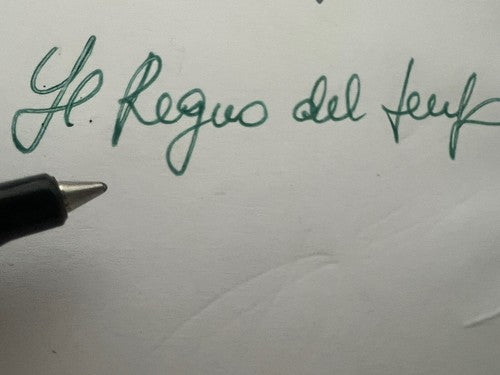 Il Regno del temp